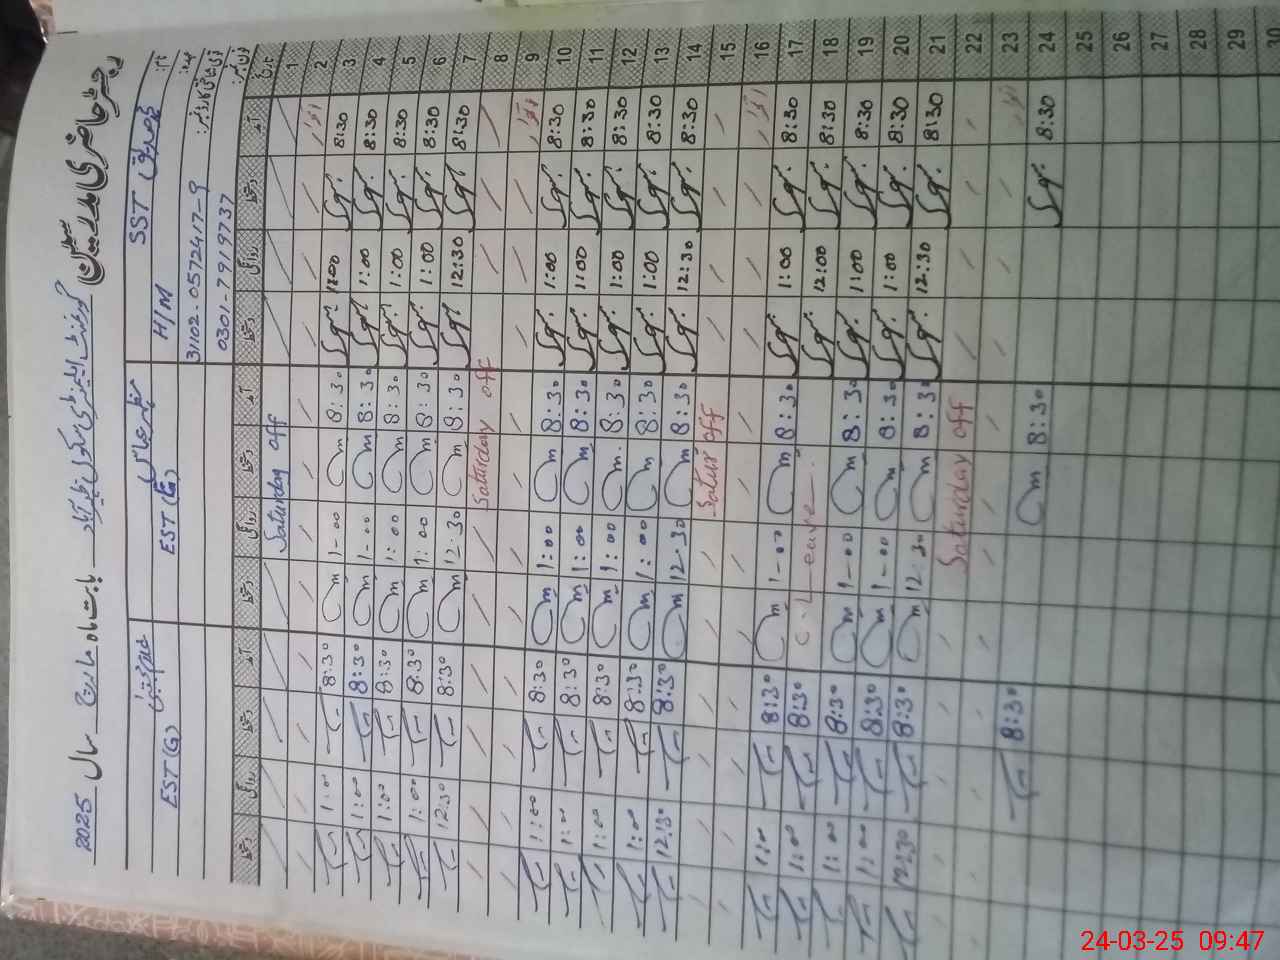 رجسٹر حاضری مدرسین گورنمنٹ ایلیمنٹری سکول بابت ماہ مارچ سال 2025
نام: محمد صدیق
SST
H/M
EST (E)
EST (G)
عہدہ:
قومی شناختی کارڈ نمبر: 31102-0572417-9
فون نمبر: 0301-7919737
تاریخ آمد دستخط روانگی دستخط آمد دستخط روانگی دستخط آمد دستخط روانگی دستخط
1 Saturday off
2 اتوار
3 8:30 1:00 8:30 1-00 8:30 1:00
4 8:30 1:00 8:30 1-00 8:30 1:00
5 8:30 1:00 8:30 1:00 8:30 1:00
6 8:30 1:00 8:30 1:00 8:30 1:00
7 8:30 12:30 8:30 12.30 8:30 12:30
8 Saturday off
9 اتوار
10 8:30 1:00 8:30 1:00 8:30 1:00
11 8:30 1:00 8:30 1:00 8:30 1:00
12 8:30 1:00 8:30 1:00 8:30 1:00
13 8:30 1:00 8:30 1:00 8:30 1:00
14 8:30 12:30 8:30 12.30 8:30 12:30
15 Satur off
16 اتوار
17 8:30 1:00 8:30 1-00 8:30 1:00
18 8:30 12:00 C.Leave 8:30 1:00
19 8:30 1:00 8:30 1-00 8:30 1:00
20 8:30 1:00 8:30 1-00 8:30 1:00
21 8:30 12:30 8:30 12.30 8:30 12:30
22 Saturday off
23 اتوار
24 8:30 8:30 8:30
25
26
27
28
29
30
24-03-25 09:47